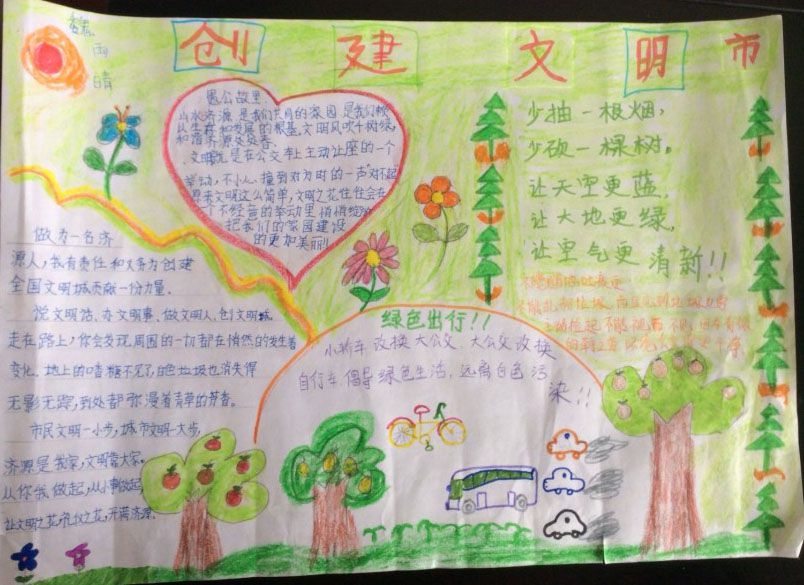 魏
雨
晴
创建文明市
愚公故里
山水济源,是我们共同的家园,是我们赖
以生存和发展的根基,文明风吹千树绿,
和谐济源处处春。
文明就是在公交车上主动让座的一个
举动,不小心撞到对方时的一声"对不起"
原来文明这么简单,文明之花往往会在
个不经意的举动里悄悄绽放
把我们的家园建设
的更加美丽!
少抽一根烟,
少砍一棵树。
让天空更蓝,
让大地更绿,
让空气更清新!!
做为一名济
源人,我有责任和义务为创建
全国文明城贡献一份力量.
说文明话、办文明事、做文明人、创文明城.
走在路上,你会发现周围的一切都在悄然的发生着
变化.地上的口香糖不见了,白色垃圾也消失得
无影无踪,到处都弥漫着青草的芳香。
市民文明一小步,城市文明一大步,
济源是我家,文明靠大家。
从你我做起,从小事做起,
让文明之花,礼仪之花,开满济源.
绿色出行!!
小轿车改换大公交、大公交改换
自行车.倡导绿色生活,远离白色污
染!!